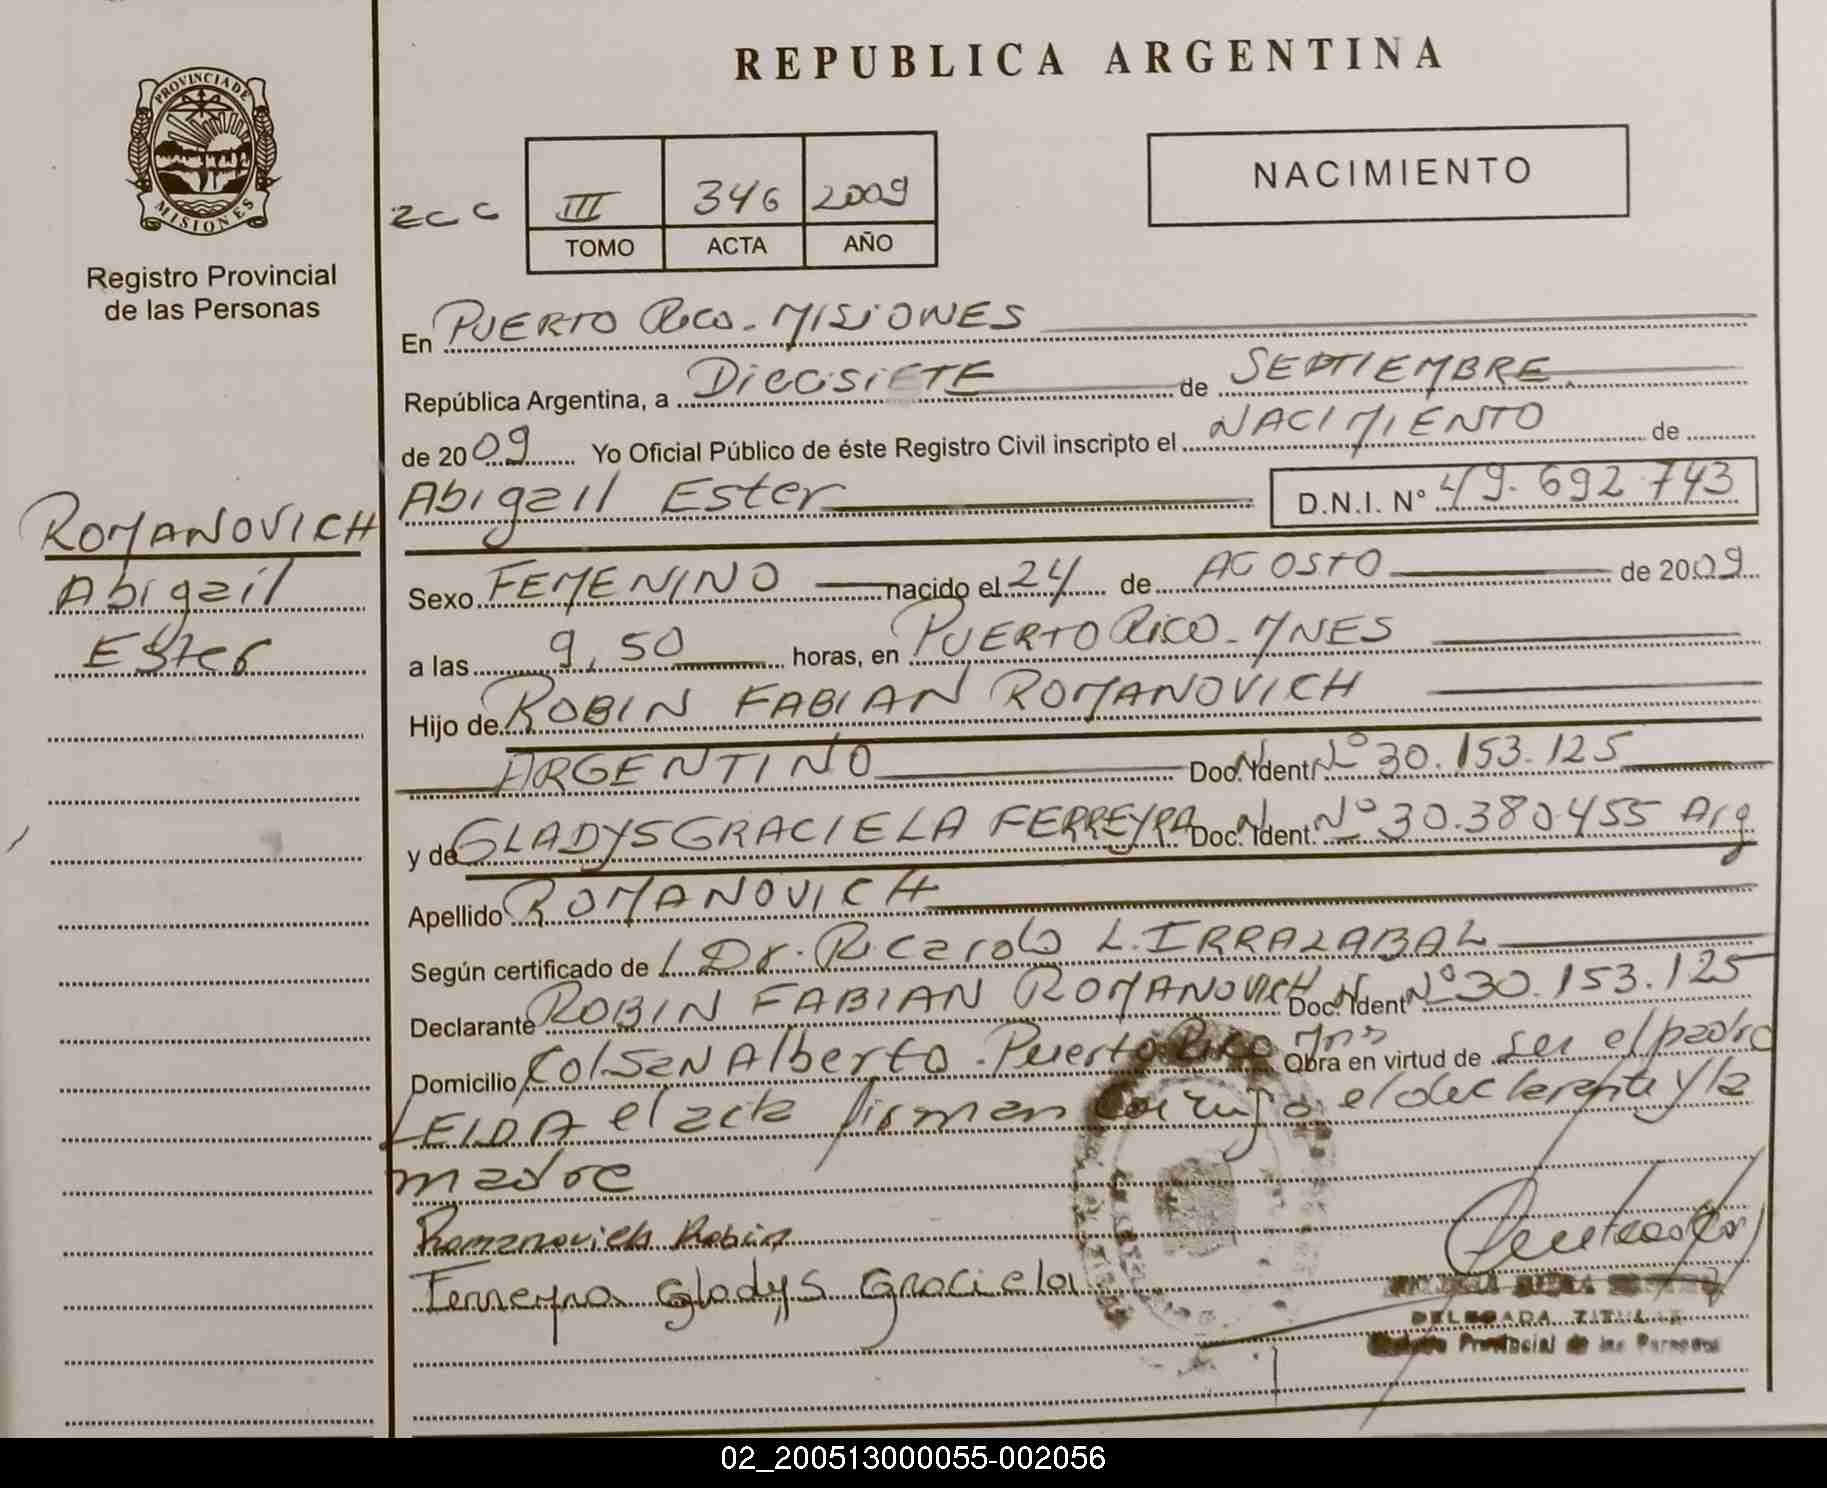 REPUBLICA ARGENTINA
PROVINCIA DE
MISIONES
Registro Provincial
de las Personas
NACIMIENTO
III 346 2009
TOMO ACTA AÑO
En PUERTO Rico. MISIONES
República Argentina, a DiecisiETE de SEPTIEMBRE
de 2009 Yo Oficial Público de éste Registro Civil inscripto el NACIMIENTO de
Abigail Ester D.N.I. Nº 49.692.743
ROMANOVICH
Abigail
Ester
Sexo FEMENINO nacido el 24 de AGOSTO de 2009
a las 9,50 horas, en PUERTO RICO - MNES
Hijo de ROBIN FABIAN ROMANOVICH
ARGENTINO Doc. Ident. Nº 30.153.125
y de GLADYS GRACIELA FERREYRA Doc. Ident. Nº 30.380.455 Arg
Apellido ROMANOVICH
Según certificado de Dr. Ricardo L. IRRAZABAL
Declarante ROBIN FABIAN ROMANOVICH Doc. Ident. Nº 30.153.125
Domicilio Col San Alberto - Puerto Rico Mns Obra en virtud de ser el padre
LEIDA el acta firman conmigo el declarante y la
madre
Romanovich Robin
Ferreyra Gladys Graciela
DELEGADA TITULAR
Provincial de las Personas
02_200513000055-002056